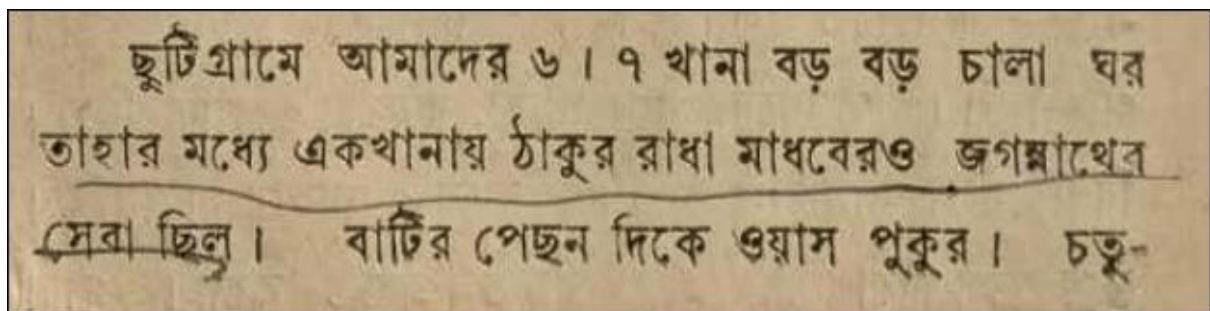 ছুটিগ্রামে আমাদের ৬। ৭ খানা বড় বড় চালা ঘর
তাহার মধ্যে একখানায় ঠাকুর রাধা মাধবেরও জগন্নাথের
সেবা ছিল। বাটির পেছন দিকে ওয়াস পুকুর। চতু-